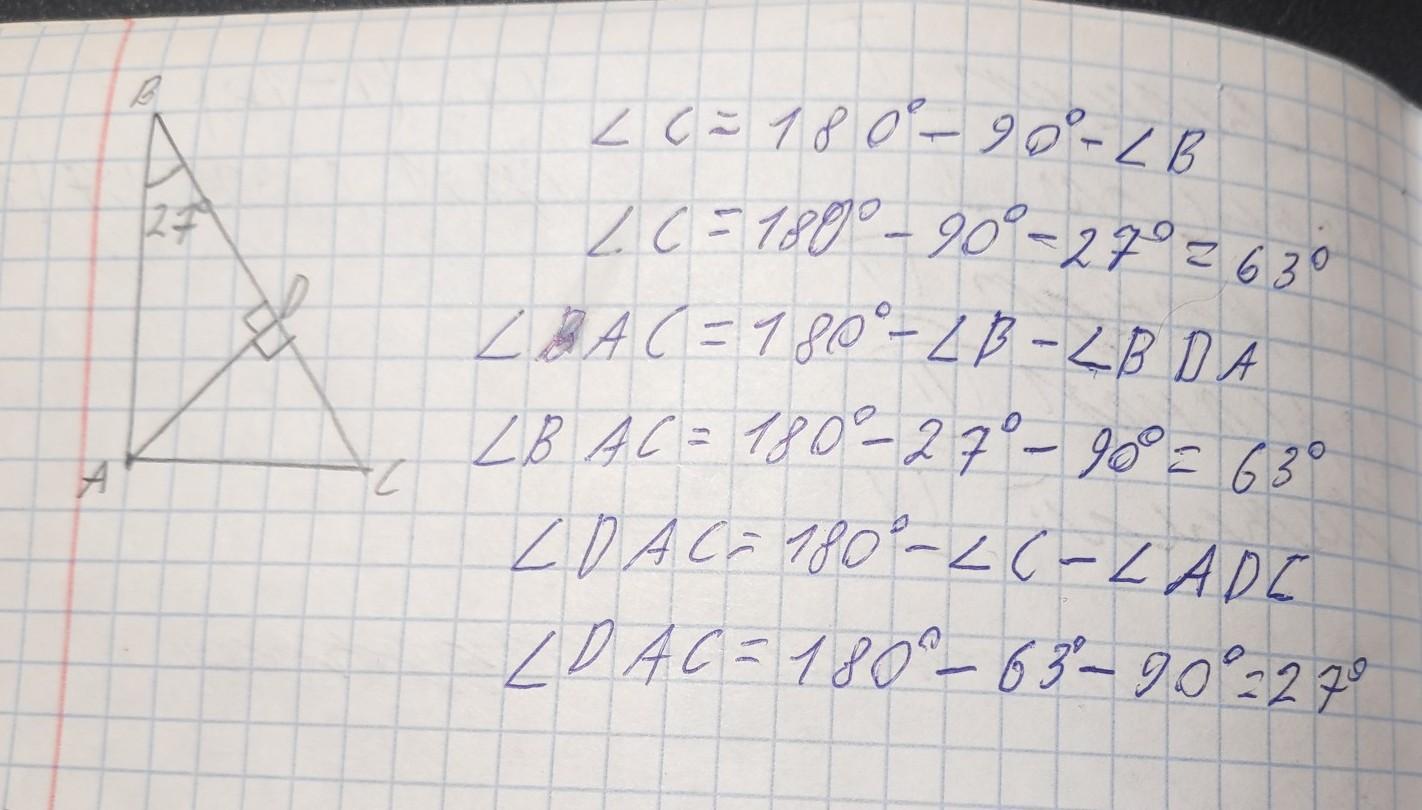 B
27°
D
A
C
∠C = 180° - 90° - ∠B
∠C = 180° - 90° - 27° = 63°
∠BAC = 180° - ∠B - ∠BDA
∠BAC = 180° - 27° - 90° = 63°
∠DAC = 180° - ∠C - ∠ADC
∠DAC = 180° - 63° - 90° = 27°